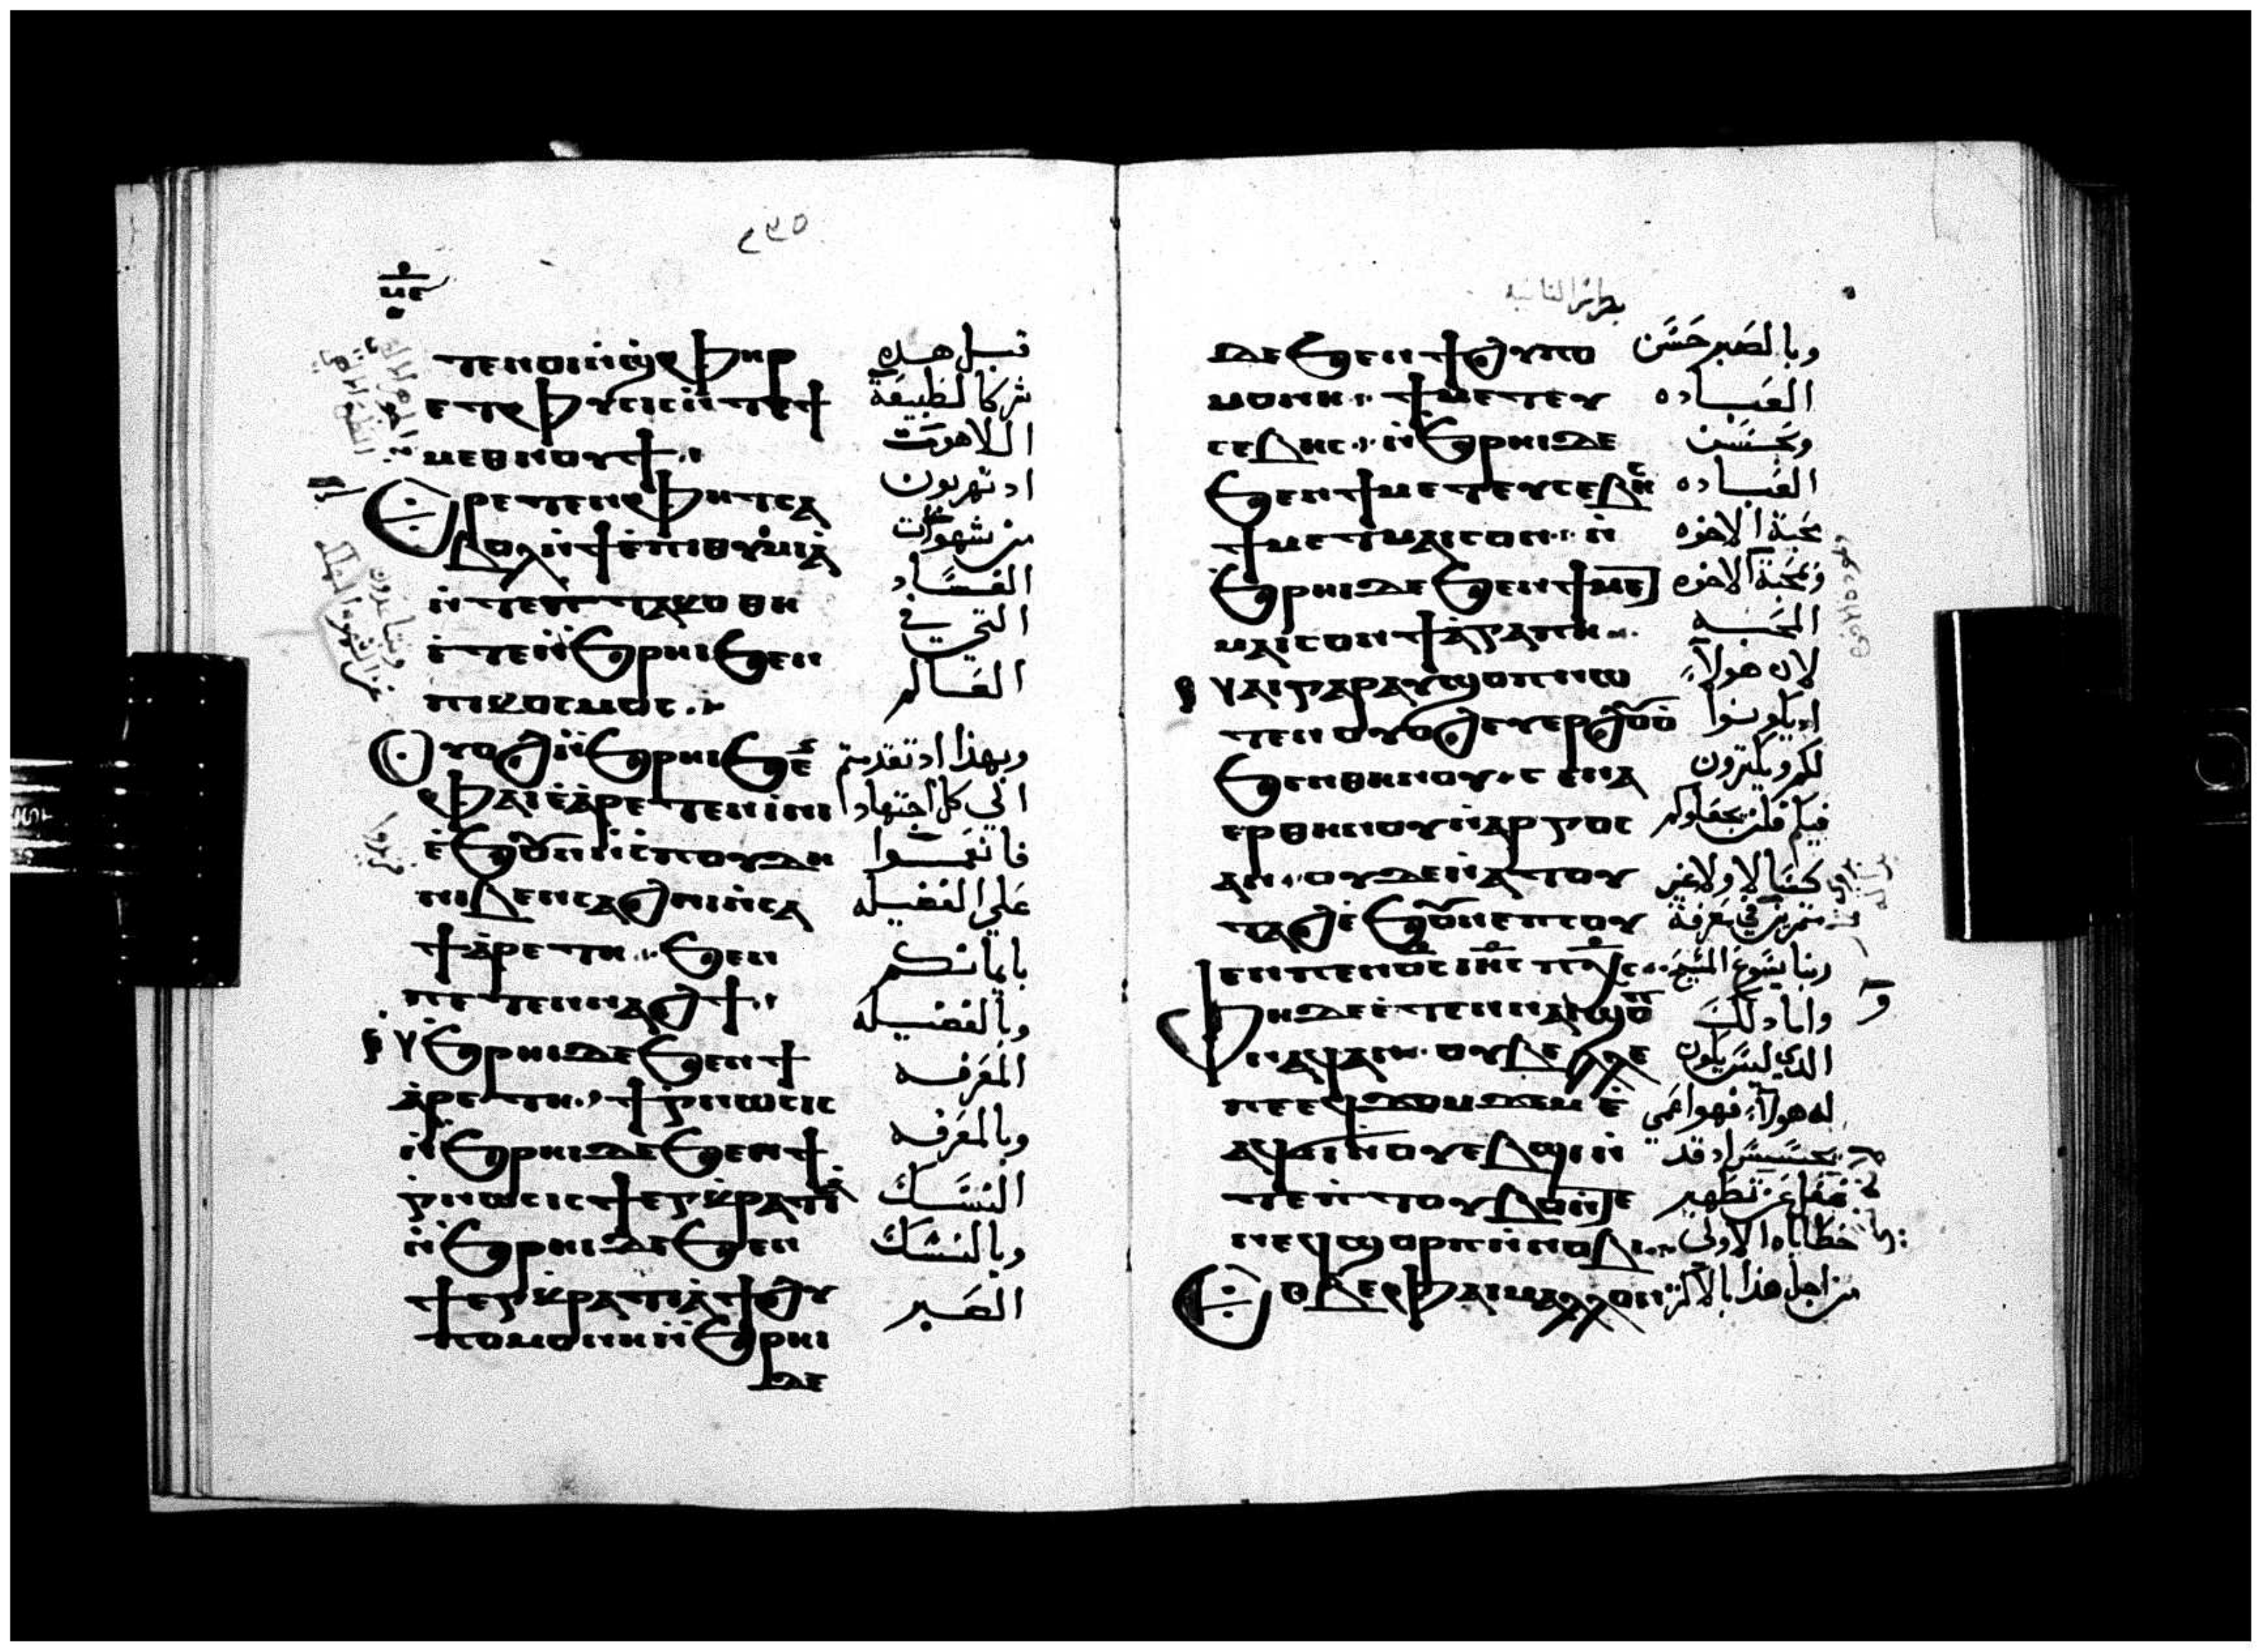 ٢٣٥
ⲧⲉⲛⲟⲓⲛ̀ϣⲫⲏⲣ
ⲉⲧⲫⲩⲥⲓⲥⲛ̀ⲧⲉϯ
ⲙⲉⲑⲛⲟⲩϯ
ⲉⲣⲉⲧⲉⲛⲫⲏⲧⲥⲁ
ⲃⲟⲗⲛ̀ϯⲉ̀ⲡⲓⲑⲩⲙⲓⲁ̀
ⲛ̀ⲧⲉⲡⲧⲁⲕⲟⲑⲏ
ⲉ̀ⲧⲉⲛ̀ϧⲣⲏⲓϧⲉⲛ
ⲡⲓⲕⲟⲥⲙⲟⲥ
ⲟⲩⲟϩⲛ̀ϧⲣⲏⲓϧⲉ
ⲫⲁⲓⲉ̀ⲁ̀ⲣⲉⲧⲉⲛⲓ̀ⲛⲓ
ⲉ̀ϧⲟⲩⲛⲛ̀ⲥ̀ⲡⲟⲩⲇⲏ
ⲛⲓⲃⲉⲛⲥⲁϩⲛⲓⲛ̀ⲥⲁ
ϯⲁ̀ⲣⲉⲧⲏ ϧⲉⲛ
ⲡⲉⲧⲉⲛⲛⲁϩϯ
ⲛ̀ϧⲣⲏⲓⲇⲉϧⲉⲛϯ
ⲁ̀ⲣⲉⲧⲏ ϯⲅⲛⲱⲥⲓⲥ
ⲛ̀ϧⲣⲏⲓⲇⲉϧⲉⲛϯ
ⲅⲛⲱⲥⲓⲥϯⲉⲅⲕⲣⲁⲧⲓⲁ̀
ⲛ̀ϧⲣⲏⲓⲇⲉϧⲉⲛ
ϯⲉⲅⲕⲣⲁⲧⲓⲁ̀ϯϩⲩ
ⲡⲟⲙⲟⲛⲏⲛ̀ϧⲣⲏⲓ
ⲇⲉ
قبل هده
شركا لطبيعة
اللاهوت
اد تهربون
من شهوات
الفساد
التي في
العالم
وبهذا اد تقدمتم
الي كل اجتهادا
فانعموا
علي الفضيله
بايمانكم
وبالفضيله
المعرفه
وبالمعرفه
النسك
وبالنسك
الصبر
ⲇⲉϧⲉⲛϯϩⲩⲡⲟ
ⲙⲟⲛⲏ ϯⲙⲉⲧⲉⲩ
ⲥⲉⲃⲏⲥ ⲛ̀ϧⲣⲏⲓⲇⲉ
ϧⲉⲛϯⲙⲉⲧⲉⲩⲥⲉⲃⲏⲥ
ϯⲙⲉⲧⲙⲁⲓⲥⲟⲛ ⲛ̀
ϧⲣⲏⲓⲇⲉϧⲉⲛϯⲙⲉⲧ
ⲙⲁⲓⲥⲟⲛϯⲁ̀ⲅⲁⲡⲏ
ⲛⲁⲓⲅⲁⲣⲁⲩϣⲟⲡⲛⲱ
ⲧⲉⲛⲟⲩⲟϩⲉⲩⲉⲣϩⲟⲩⲟ̀
ϧⲉⲛⲑⲏⲛⲟⲩ ⲥⲉⲛⲁ
ⲉⲣⲑⲏⲛⲟⲩⲛ̀ⲁⲣⲅⲟⲥ
ⲁⲛ ⲟⲩⲇⲉⲛ̀ⲁⲧⲟⲩ
ⲧⲁϩⲉ̀ϧⲟⲩⲛⲉⲡⲥⲟⲩ
ⲉⲛⲡⲉⲛⲟ̅ⲥ̅ ⲓⲏ̅ⲥ̅ ⲡⲭ̅ⲥ̅
ⲫⲏⲇⲉⲉ̀ⲧⲉⲛⲛⲁⲓϣⲟⲡ
ⲛⲁϥⲁⲛ ⲟⲩⲃⲉⲗⲗⲉ
ⲡⲉⲉϥϫⲟⲙϫⲉⲙ ⲉ̀
ⲁϥϭⲓⲛⲟⲩⲉⲃϣⲓⲛ̀
ⲧⲉⲛ̀ⲧⲟⲩⲃⲟⲛ̀ⲧⲉ
ⲛⲉϥϣⲟⲣⲡⲛ̀ⲛⲟⲃⲓ
ⲉⲑⲃⲉⲫⲁⲓⲙⲁⲗⲗⲟⲛ
وبالصبر حسن
العباده
وبحسن
العباده
محبة الاخوه
وبمحبة الاخوه
المحبه
لان هولآء
اد يكونوا
لكم ويكثرون
فيكم
ربنا يسوع المسيح
واما دلك
الدي ليس يكون
له هولآء فهو اعمي
يحسس اد قد
خطاياه الاولي
من اجل هذا بالاكثر